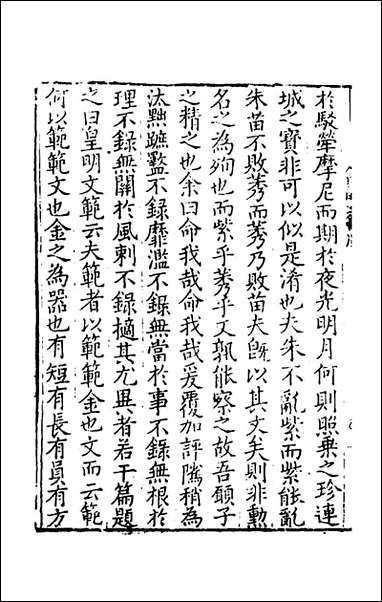 於駁犖摩尼而期於夜光明月何則照乗之珍連
城之寶非可以似是淆也夫朱不亂紫而紫能亂
朱苗不敗莠而莠乃敗苗夫旣以其文矣則非勳
名之為殉也而紫乎莠乎又孰能察之故吾願子
之精之也余曰命我哉命我哉爰覆加評隲稍為
汰黜蹠盭不錄靡濫不錄無當於事不錄無根於
理不錄無關於風刺不錄摘其尤異者若干篇題
之曰皇明文範云夫範者以範範金也文而云範
何以範範文也金之為器也有短有長有員有方